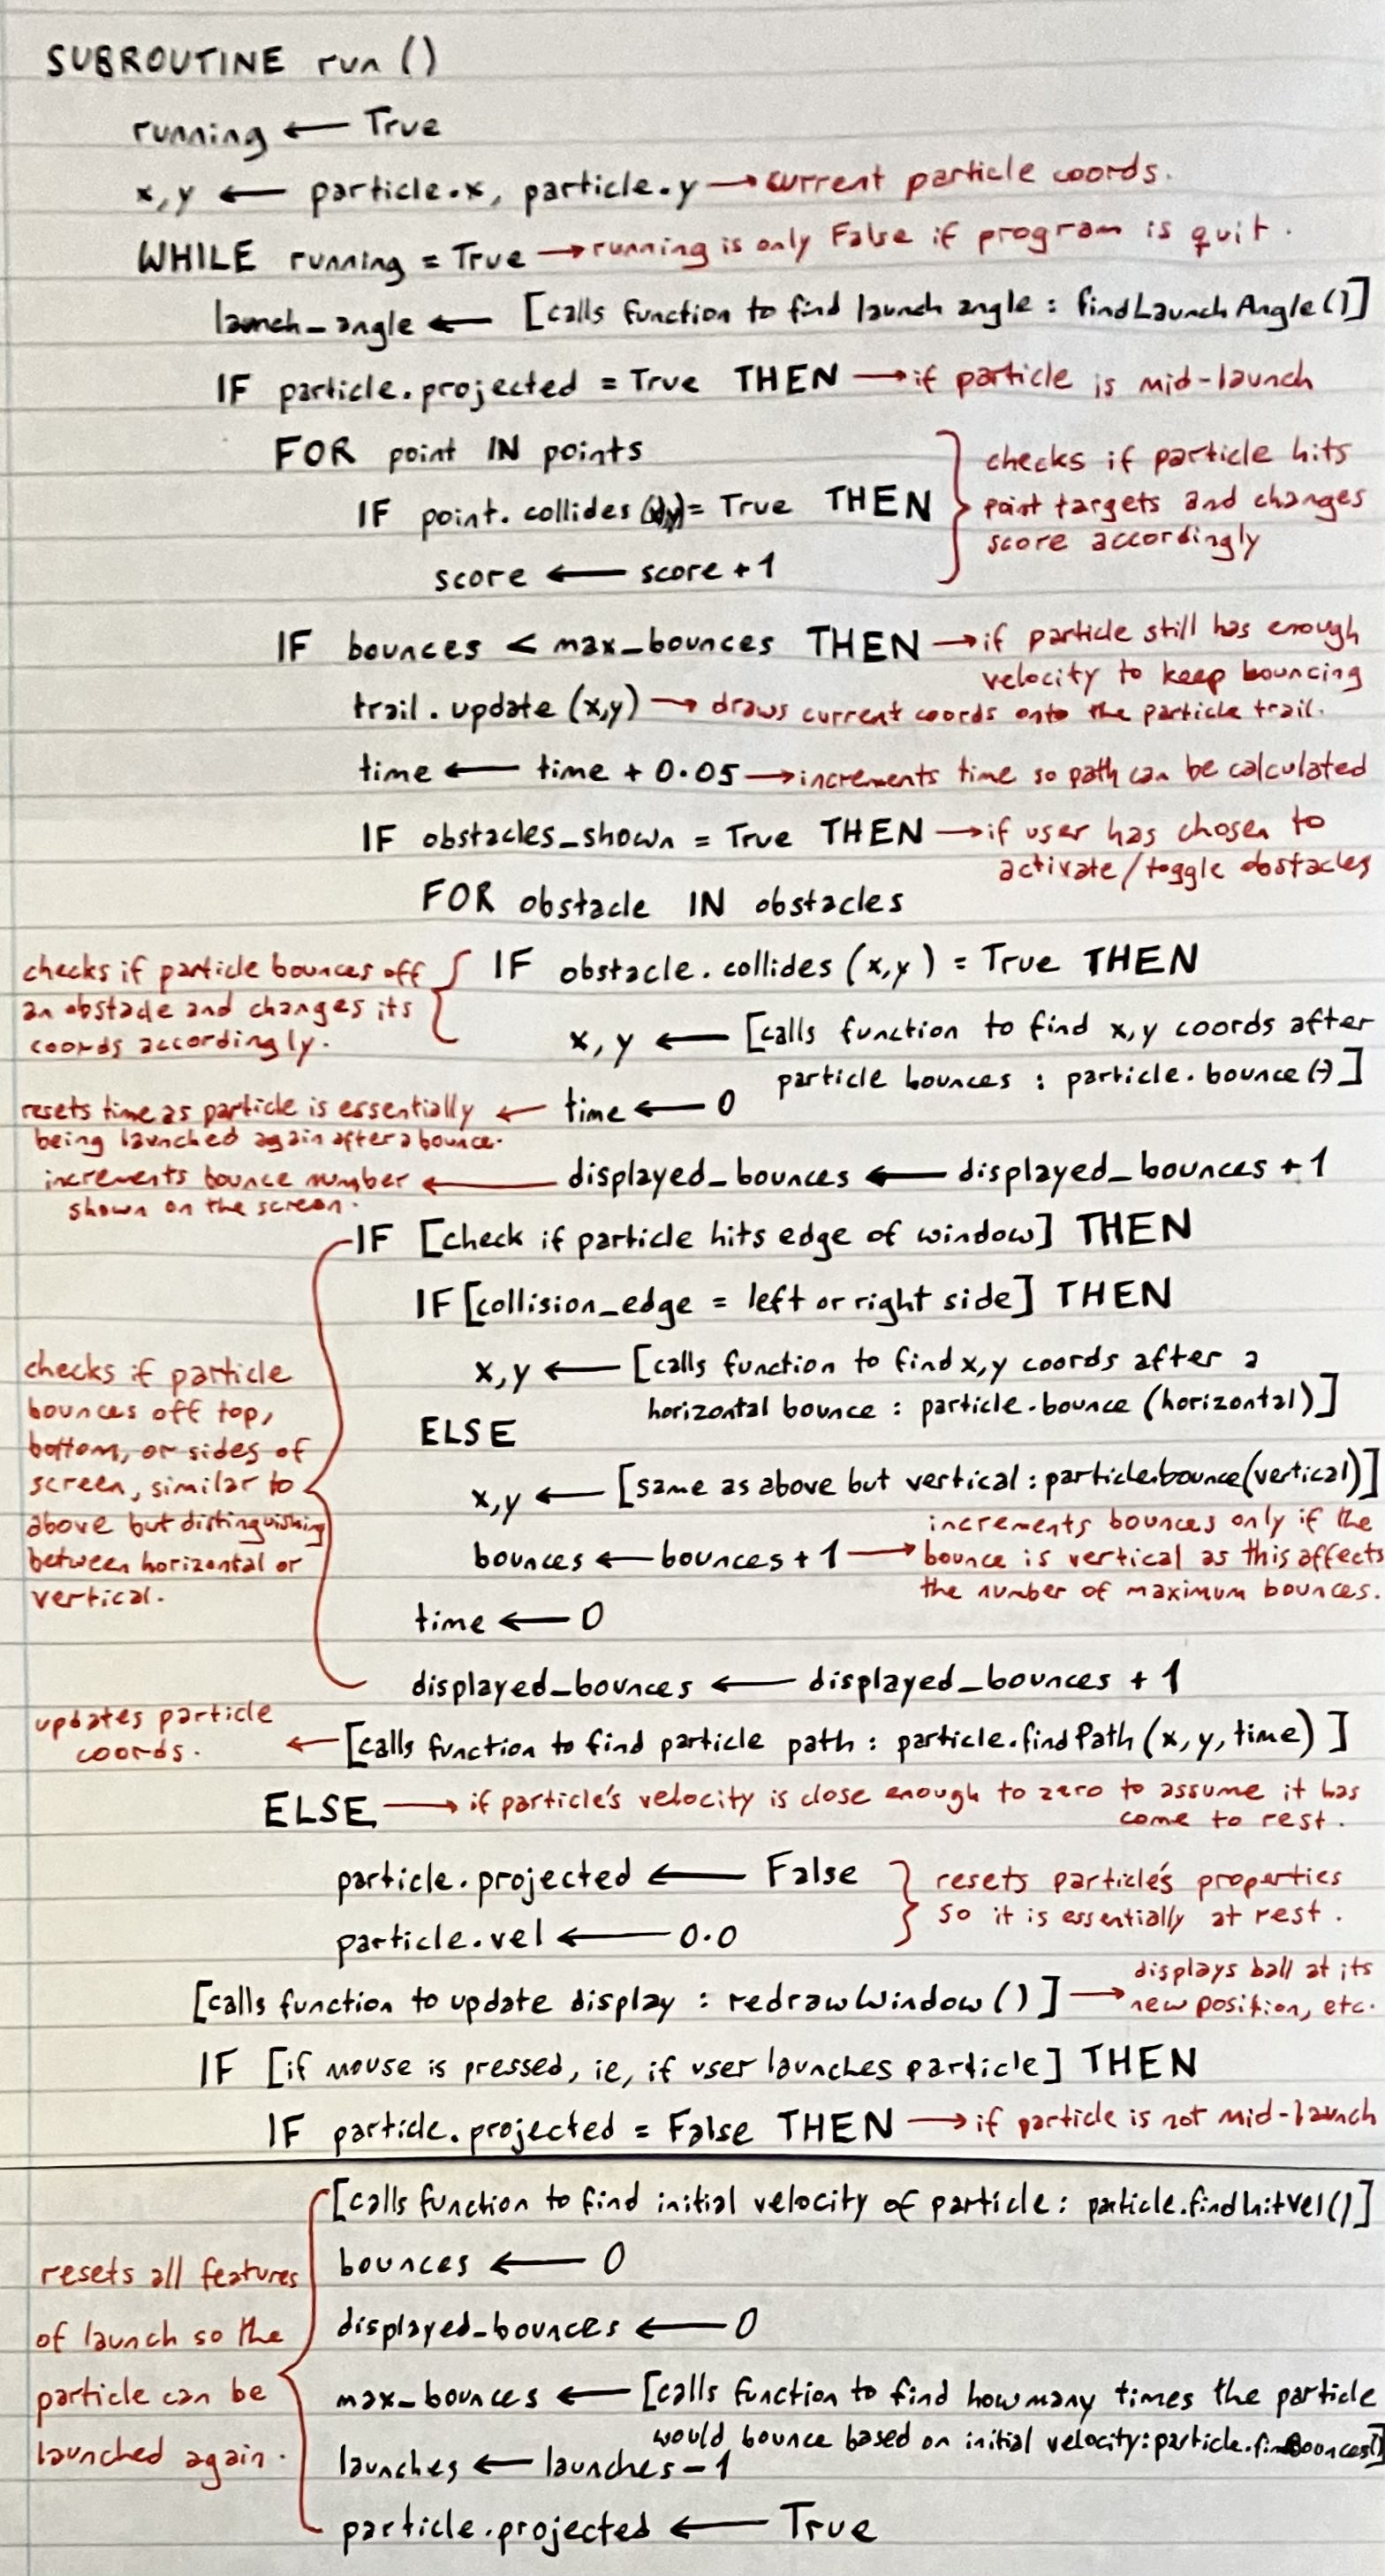 SUBROUTINE run ()
running ← True
x,y ← particle.x, particle.y → current particle coords.
WHILE running = True → running is only False if program is quit.
launch_angle ← [calls function to find launch angle : findLaunchAngle()]
IF particle.projected = True THEN → if particle is mid-launch
FOR point IN points
IF point.collides = True THEN
score ← score + 1
checks if particle hits
point targets and changes
score accordingly
IF bounces < max_bounces THEN → if particle still has enough
velocity to keep bouncing
trail.update (x,y) → draws current coords onto the particle trail.
time ← time + 0.05 → increments time so path can be calculated
IF obstacles_shown = True THEN → if user has chosen to
activate/toggle obstacles
FOR obstacle IN obstacles
checks if particle bounces off
an obstacle and changes its
coords accordingly.
IF obstacle.collides (x,y) = True THEN
x, y ← [calls function to find x,y coords after
particle bounces : particle.bounce(-)]
resets time as particle is essentially
being launched again after a bounce.
← time ← 0
increments bounce number
shown on the screen.
← displayed_bounces ← displayed_bounces + 1
IF [check if particle hits edge of window] THEN
IF [collision_edge = left or right side] THEN
x,y ← [calls function to find x,y coords after a
horizontal bounce : particle.bounce (horizontal)]
ELSE
x,y ← [same as above but vertical : particle.bounce(vertical)]
bounces ← bounces + 1 → increments bounces only if the
bounce is vertical as this affects
the number of maximum bounces.
time ← 0
displayed_bounces ← displayed_bounces + 1
checks if particle
bounces off top,
bottom, or sides of
screen, similar to
above but distinguishing
between horizontal or
vertical.
updates particle
coords.
← [calls function to find particle path : particle.findPath (x, y, time) ]
ELSE → if particle's velocity is close enough to zero to assume it has
come to rest.
particle.projected ← False
particle.vel ← 0.0
resets particle's properties
so it is essentially at rest.
[calls function to update display : redrawWindow ()] → displays ball at its
new position, etc.
IF [if mouse is pressed, ie, if user launches particle] THEN
IF particle.projected = False THEN → if particle is not mid-launch
[calls function to find initial velocity of particle : particle.findInitVel()]
bounces ← 0
displayed_bounces ← 0
max_bounces ← [calls function to find how many times the particle
would bounce based on initial velocity: particle.findBounces()]
launches ← launches - 1
particle.projected ← True
resets all features
of launch so the
particle can be
launched again.